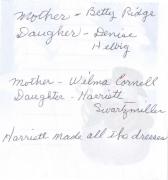 Mother - Betty Ridge
Daugher - Denise
Helbig
Mother - Wilma Cornell
Daughter - Harriett
Swartzmiller
Harriett made all the dresses